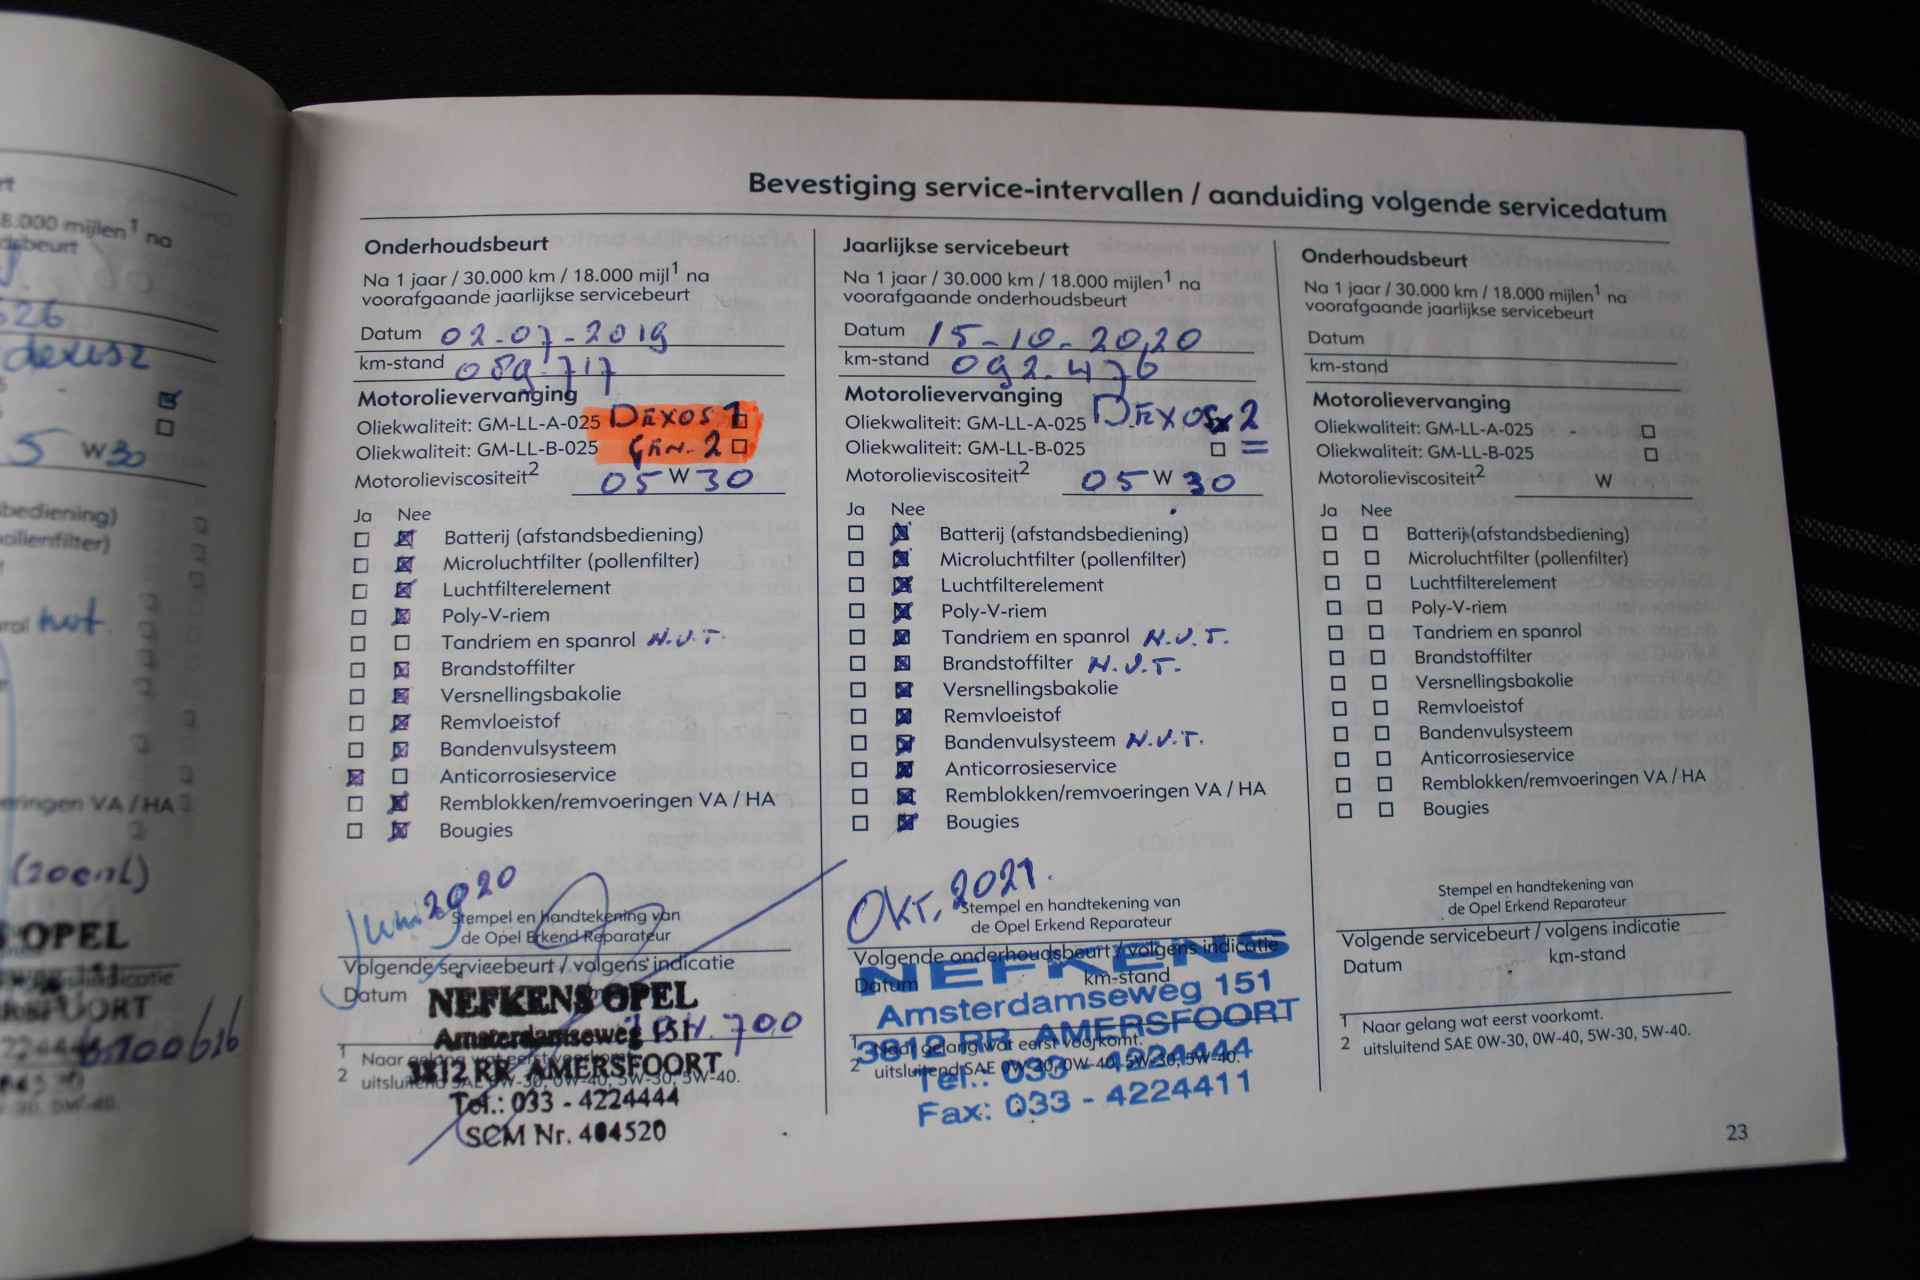 rt
8.000 mijlen¹ na
dsbeurt
526
dexos2
5 W 30
sbediening)
ollenfilter)
rol nvt.
eringen VA / HA
(20cnL)
OPEL
indicatie
RSFOORT
22444
6100626
Bevestiging service-intervallen / aanduiding volgende servicedatum
Onderhoudsbeurt
Na 1 jaar / 30.000 km / 18.000 mijl¹ na
voorafgaande jaarlijkse servicebeurt
Datum 02-07-2019
km-stand 089.717
Motorolievervanging
Oliekwaliteit: GM-LL-A-025 DEXOS 1
Oliekwaliteit: GM-LL-B-025 GEN. 2
Motorolieviscositeit² 05 W 30
Ja Nee
Batterij (afstandsbediening)
Microluchtfilter (pollenfilter)
Luchtfilterelement
Poly-V-riem
Tandriem en spanrol N.V.T.
Brandstoffilter
Versnellingsbakolie
Remvloeistof
Bandenvulsysteem
Anticorrosieservice
Remblokken/remvoeringen VA / HA
Bougies
Juni 2020
Stempel en handtekening van
de Opel Erkend Reparateur
Volgende servicebeurt / volgens indicatie
Datum
NEFKENS OPEL
Amsterdamseweg 151
700
3812 RR AMERSFOORT
Tel.: 033 - 4224444
SCM Nr. 404520
1 Naar gelang wat eerst voorkomt.
2 uitsluitend SAE 0W-30, 0W-40, 5W-30, 5W-40.
Jaarlijkse servicebeurt
Na 1 jaar / 30.000 km / 18.000 mijlen¹ na
voorafgaande onderhoudsbeurt
Datum 15-10-2020
km-stand 092.476
Motorolievervanging
Oliekwaliteit: GM-LL-A-025 DEXOS 2
Oliekwaliteit: GM-LL-B-025 =
Motorolieviscositeit² 05 W 30
Ja Nee
Batterij (afstandsbediening)
Microluchtfilter (pollenfilter)
Luchtfilterelement
Poly-V-riem
Tandriem en spanrol N.V.T.
Brandstoffilter N.V.T.
Versnellingsbakolie
Remvloeistof
Bandenvulsysteem N.V.T.
Anticorrosieservice
Remblokken/remvoeringen VA / HA
Bougies
OKT. 2021.
Stempel en handtekening van
de Opel Erkend Reparateur
Volgende onderhoudsbeurt / volgens indicatie
Datum km-stand
NEFKENS
Amsterdamseweg 151
3812 RR AMERSFOORT
Tel.: 033 - 4224444
Fax: 033 - 4224411
1 Naar gelang wat eerst voorkomt.
2 uitsluitend SAE 0W-30, 0W-40, 5W-30, 5W-40.
Onderhoudsbeurt
Na 1 jaar / 30.000 km / 18.000 mijlen¹ na
voorafgaande jaarlijkse servicebeurt
Datum
km-stand
Motorolievervanging
Oliekwaliteit: GM-LL-A-025 -
Oliekwaliteit: GM-LL-B-025
Motorolieviscositeit² W
Ja Nee
Batterij (afstandsbediening)
Microluchtfilter (pollenfilter)
Luchtfilterelement
Poly-V-riem
Tandriem en spanrol
Brandstoffilter
Versnellingsbakolie
Remvloeistof
Bandenvulsysteem
Anticorrosieservice
Remblokken/remvoeringen VA / HA
Bougies
Stempel en handtekening van
de Opel Erkend Reparateur
Volgende servicebeurt / volgens indicatie
Datum km-stand
1 Naar gelang wat eerst voorkomt.
2 uitsluitend SAE 0W-30, 0W-40, 5W-30, 5W-40.
23